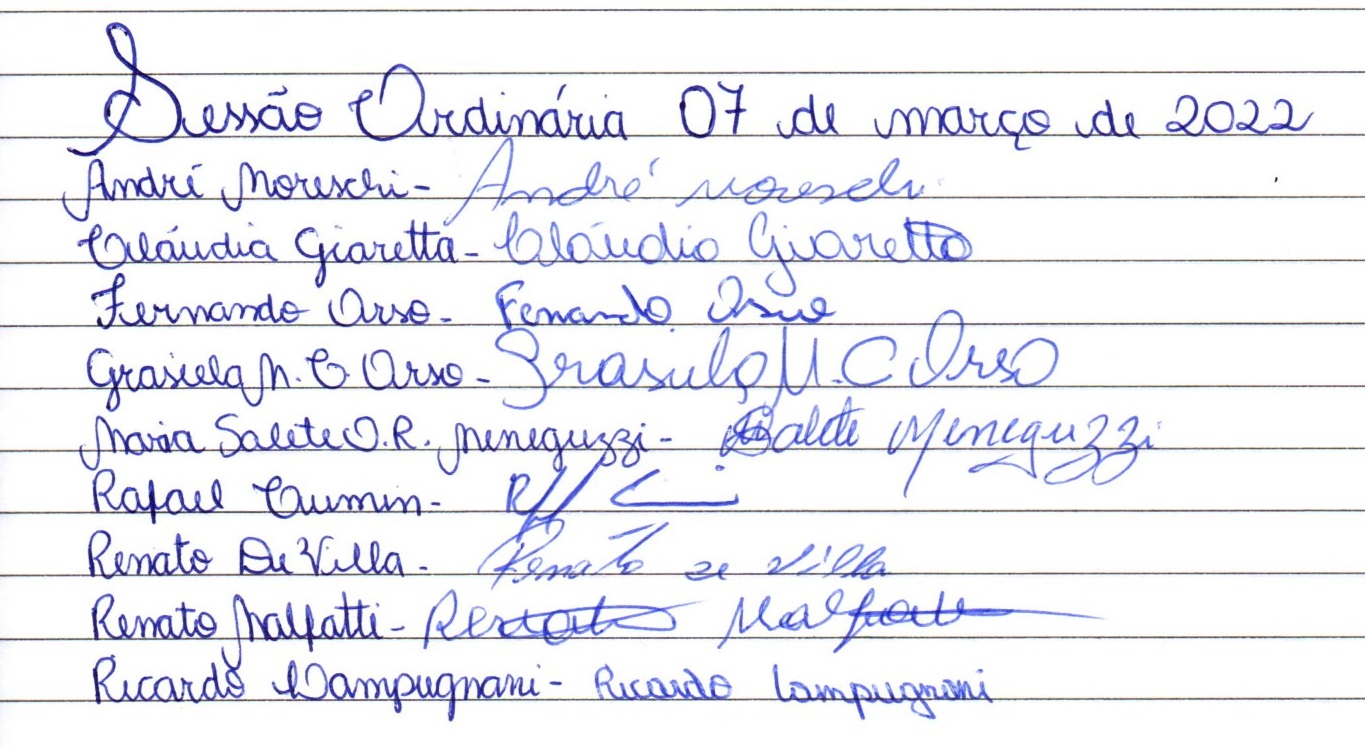 Sessão Ordinária 07 de março de 2022
André Moreschi - André Moreschi
Cláudia Giaretta - Cláudia Giaretta
Fernando Orso - Fernando Orso
Grasiela M. C Orso - Grasiela M. C Orso
Maria Salete O. R. Meneguzzi - Salete Meneguzzi
Rafael Cumin -
Renato De Villa - Renato De Villa
Renato Malfatti - Renato Malfatti
Ricardo Lampugnani - Ricardo Lampugnani